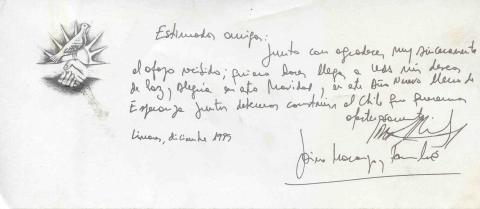 Estimados amigos:
Junto con agradecer muy sinceramente
el apoyo recibido; quiero hacer llegar a Uds mis deseos
de Paz y Alegría en esta Navidad y en este Año Nuevo lleno de
Esperanza. Juntos debemos construir el Chile que queremos
afectuosamente
Linares, diciembre 1989
Jaime y Familia